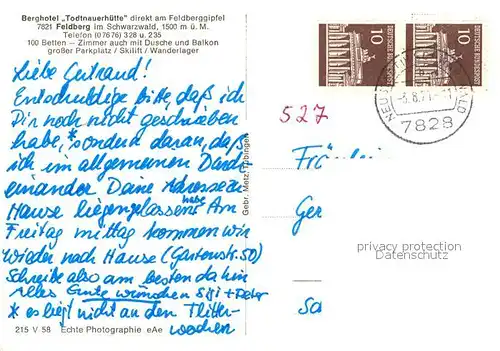 Berghotel „Todtnauerhütte" direkt am Feldberggipfel
7821 Feldberg im Schwarzwald, 1500 m ü. M.
Telefon (07676) 328 u. 235
100 Betten – Zimmer auch mit Dusche und Balkon
großer Parkplatz / Skilift / Wanderlager
Liebe Gertraud!
Entschuldige bitte, daß ich
Dir noch nicht geschrieben
habe, * sondern daran, daß
ich im allgemeinen Durch
einander Deine Adresse zu
Hause liegengelassen habe Am
Freitag mittag kommen wir
wieder nach Hause (Gartenstr. 50)
Schreibe also am besten da hin
Alles Gute wünschen Sigi + Peter
* es liegt nicht an den Flitter-
wochen
215 V 58 Echte Photographie eAe
Gebr. Metz, Tübingen
527
10
DEUTSCHE BUNDESPOST
10
7828
Fräulein
Ger
Sa
privacy protection
DATENSCHUTZ